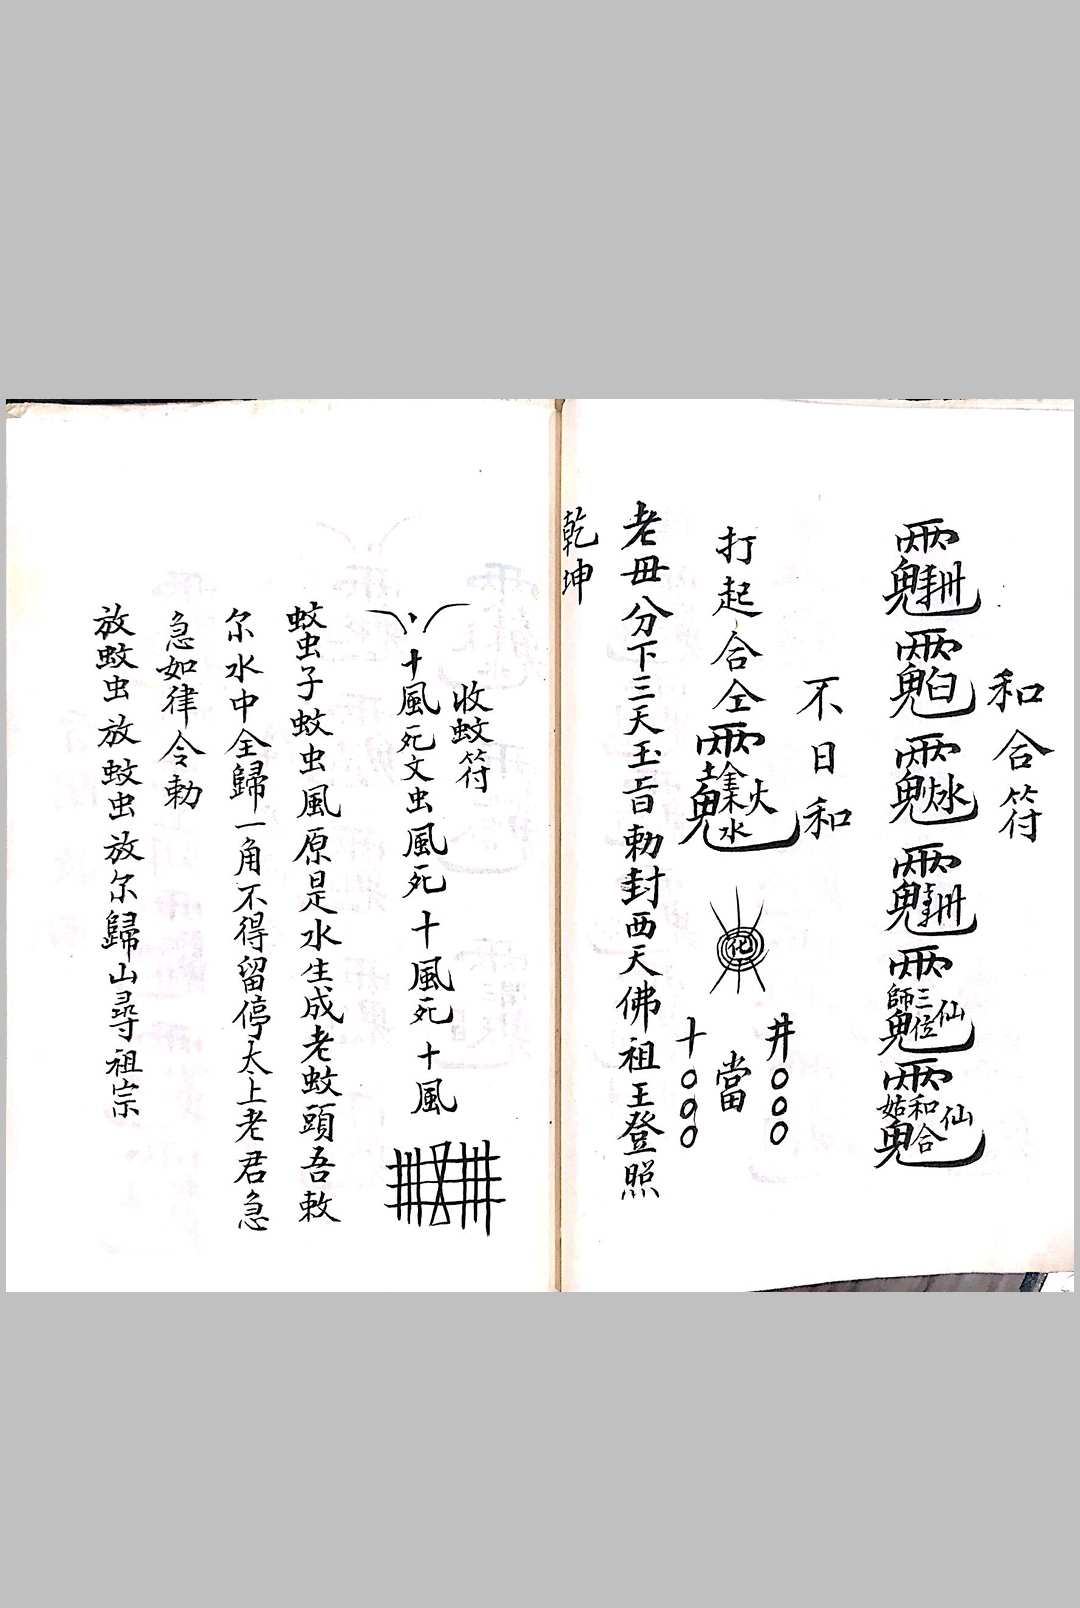 和合符
師三位仙
姑和合仙
不日和
打起合仝
土金木水火
化
井
當
十
老毋分下三天玉旨勅封西天佛祖王登照
乾坤
收蚊符
十風死文虫風死十風死十風
蚊虫子蚊虫風原是水生成老蚊頭吾敕
尔水中全歸一角不得留停太上老君急
急如律令勅
放蚊虫放蚊虫放尔歸山尋祖宗